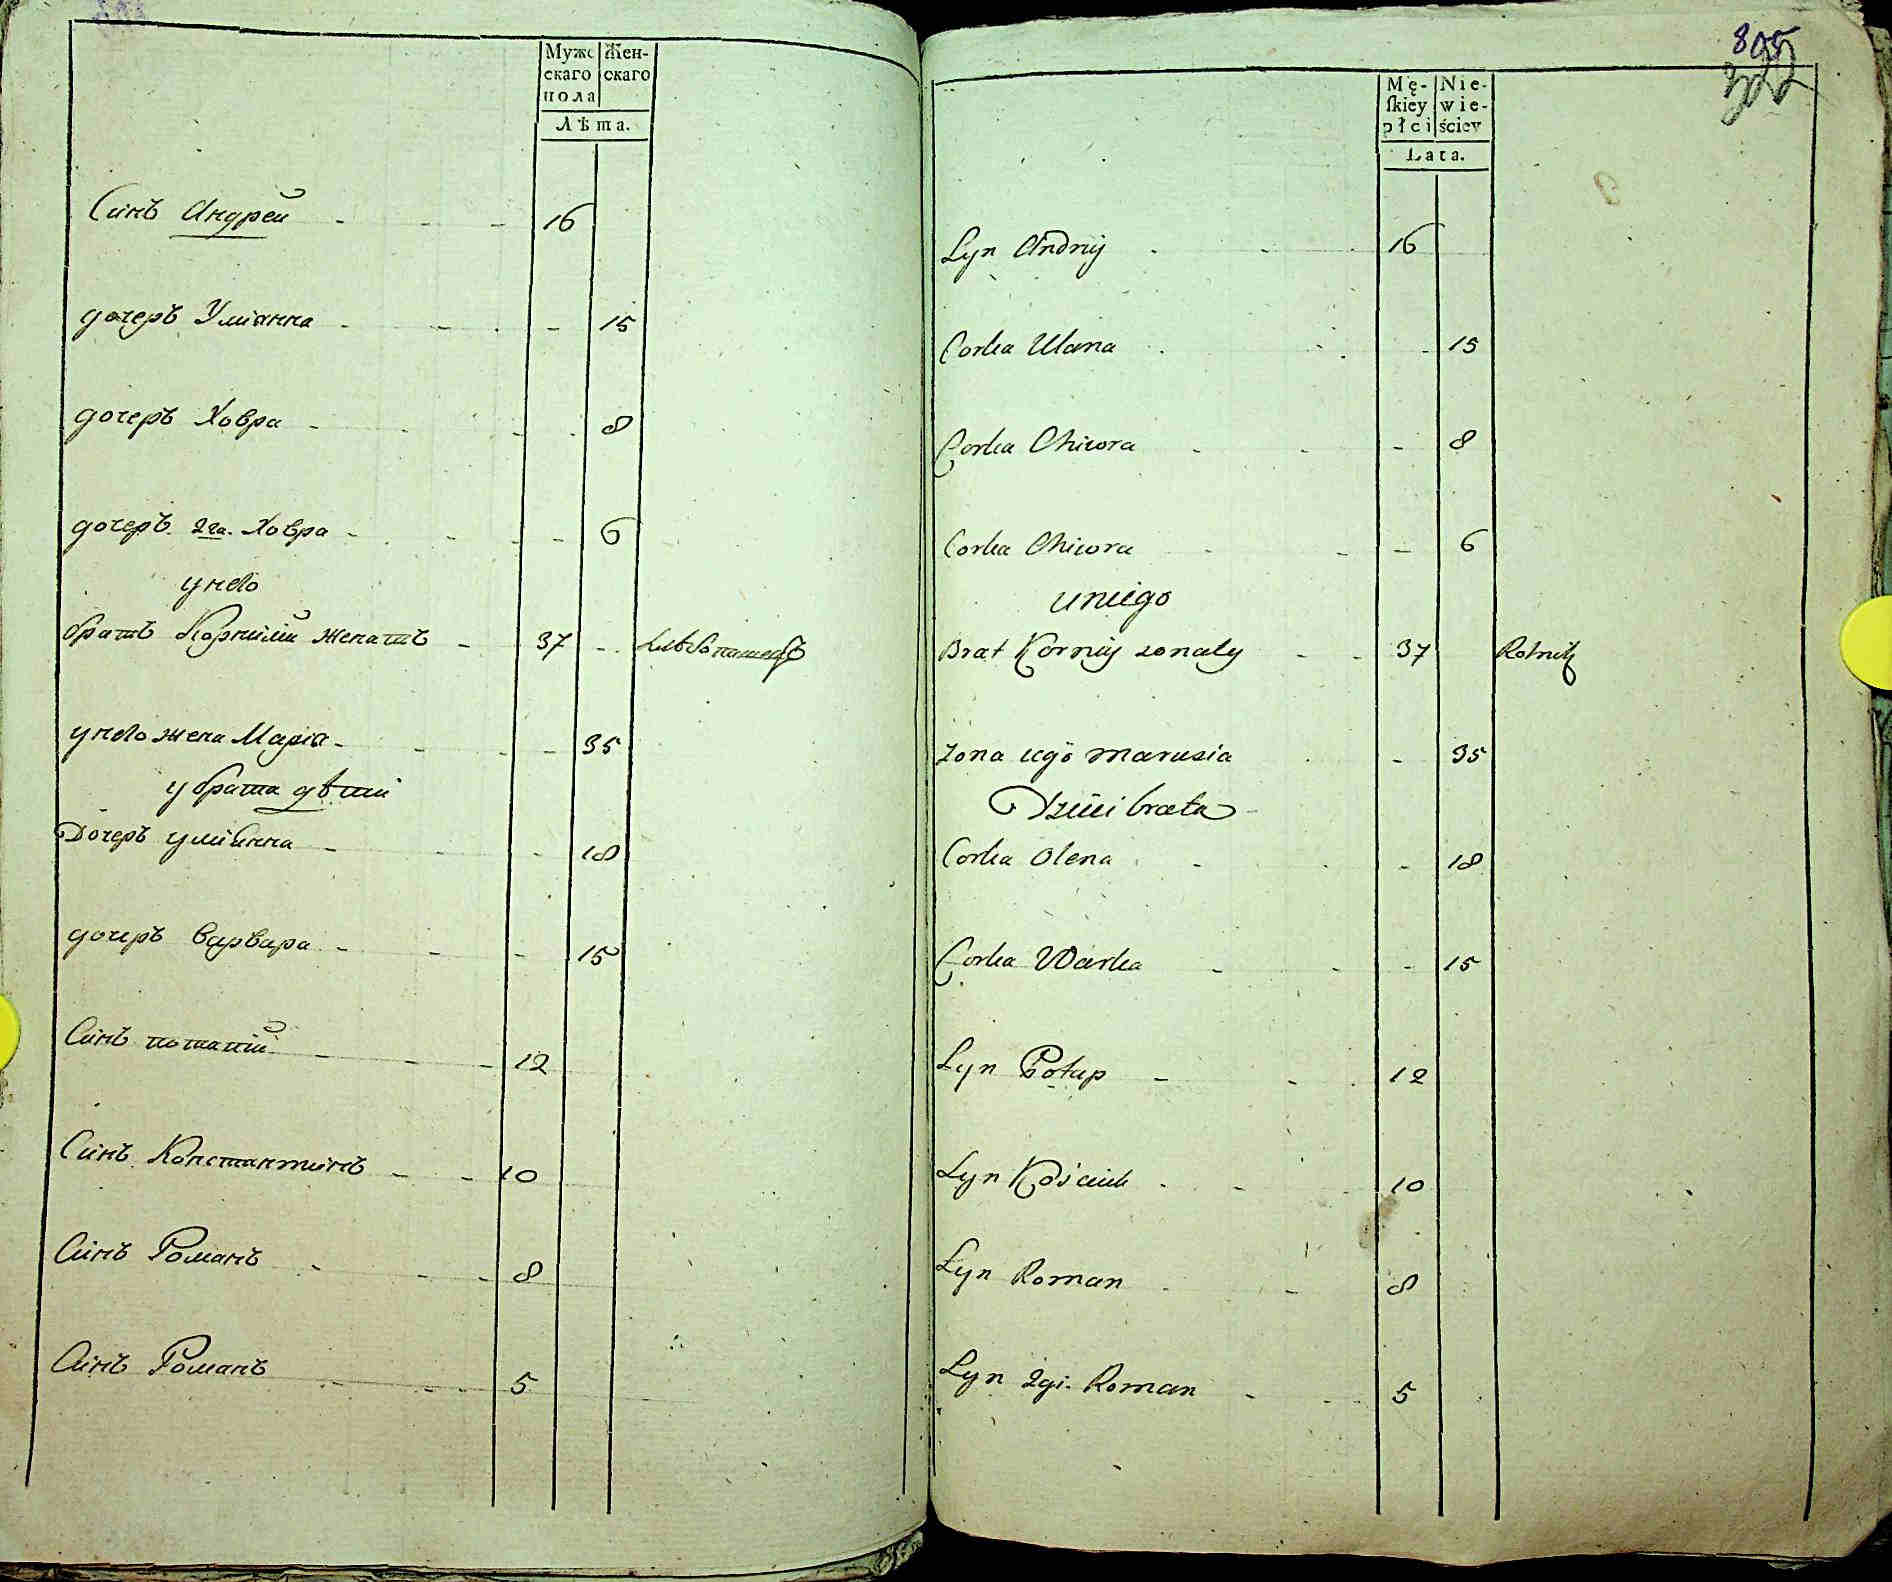 Мужс Жен-
скаго скаго
пола
Лѣта.
Синъ Андрей 16
дочеръ Улiянна 15
дочеръ Ховра 8
дочеръ 2га. Ховра 6
унево
братъ Корнилiй женатъ 37 хлѣбопашецъ
унево жена Марiя 35
у брата дѣти
Дочеръ улiянна 18
дочеръ варвара 15
Синъ потапiй 12
Синъ Константинъ 10
Синъ Романъ 8
Синъ Романъ 5
805
322
Mę- Nie-
ſkiey wie-
płci ściey
Lata.
Syn Andriy 16
Corka Ulana 15
Corka Chiwra 8
Corka Chiwra 6
uniego
Brat Korniy zonaty 37 Rolnik
Zona iego marusia 35
Dzieci brata
Corka Olena 18
Corka Warka 15
Syn Potap 12
Syn Kościuk 10
Syn Roman 8
Syn 2gi. Roman 5